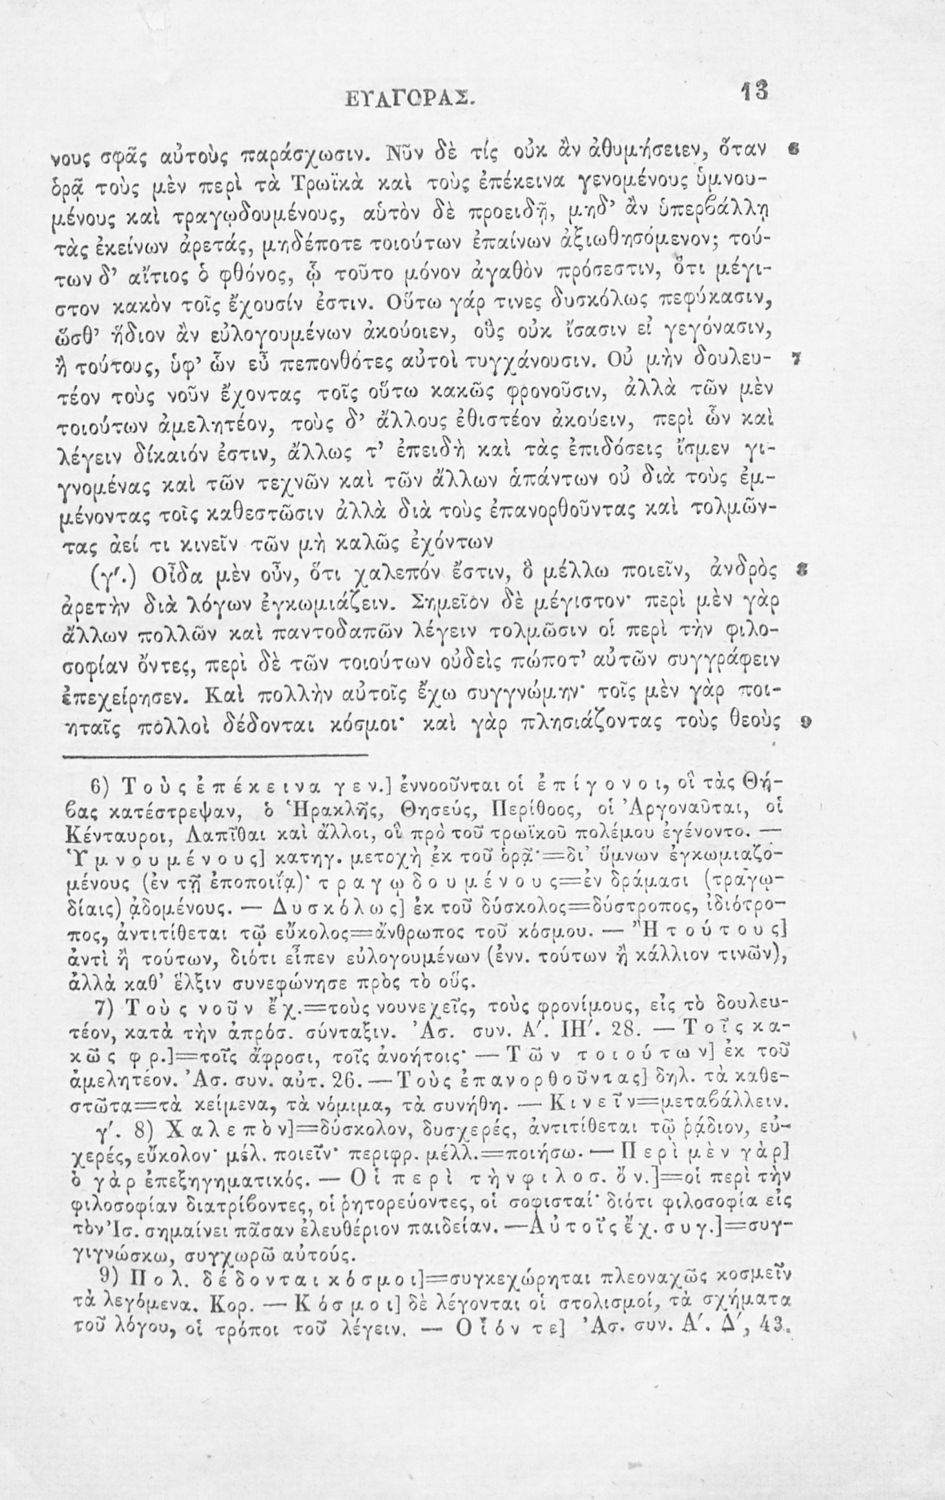 ΕΥΑΓΟΡΑΣ. 13
νους σφᾶς αὐτοὺς παράσχωσιν. Νῦν δὲ τίς οὐκ ἂν ἀθυμήσειεν, ὅταν 6
ὁρᾷ τοὺς μὲν περὶ τὰ Τρωϊκὰ καὶ τοὺς ἐπέκεινα γενομένους ὑμνου-
μένους καὶ τραγῳδουμένους, αὑτὸν δὲ προειδῇ, μηδ’ ἂν ὑπερβάλλῃ
τὰς ἐκείνων ἀρετάς, μηδέποτε τοιούτων ἐπαίνων ἀξιωθησόμενον; τού-
των δ’ αἴτιος ὁ φθόνος, ᾧ τοῦτο μόνον ἀγαθὸν πρόσεστιν, ὅτι μέγι-
στον κακὸν τοῖς ἔχουσίν ἐστιν. Οὕτω γάρ τινες δυσκόλως πεφύκασιν,
ὥσθ’ ἥδιον ἂν εὐλογουμένων ἀκούοιεν, οὓς οὐκ ἴσασιν εἰ γεγόνασιν,
ἢ τούτους, ὑφ’ ὧν εὖ πεπονθότες αὐτοὶ τυγχάνουσιν. Οὐ μὴν δουλευ- 7
τέον τοὺς νοῦν ἔχοντας τοῖς οὕτω κακῶς φρονοῦσιν, ἀλλὰ τῶν μὲν
τοιούτων ἀμελητέον, τοὺς δ’ ἄλλους ἐθιστέον ἀκούειν, περὶ ὧν καὶ
λέγειν δίκαιόν ἐστιν, ἄλλως τ’ ἐπειδὴ καὶ τὰς ἐπιδόσεις ἴσμεν γι-
γνομένας καὶ τῶν τεχνῶν καὶ τῶν ἄλλων ἁπάντων οὐ διὰ τοὺς ἐμ-
μένοντας τοῖς καθεστῶσιν ἀλλὰ διὰ τοὺς ἐπανορθοῦντας καὶ τολμῶν-
τας ἀεί τι κινεῖν τῶν μὴ καλῶς ἐχόντων
(γ′.) Οἶδα μὲν οὖν, ὅτι χαλεπόν ἔστιν, ὃ μέλλω ποιεῖν, ἀνδρὸς 8
ἀρετὴν διὰ λόγων ἐγκωμιάζειν. Σημεῖον δὲ μέγιστον· περὶ μὲν γὰρ
ἄλλων πολλῶν καὶ παντοδαπῶν λέγειν τολμῶσιν οἱ περὶ τὴν φιλο-
σοφίαν ὄντες, περὶ δὲ τῶν τοιούτων οὐδεὶς πώποτ’ αὐτῶν συγγράφειν
ἐπεχείρησεν. Καὶ πολλὴν αὐτοῖς ἔχω συγγνώμην· τοῖς μὲν γὰρ ποι-
ηταῖς πολλοὶ δέδονται κόσμοι· καὶ γὰρ πλησιάζοντας τοὺς θεοὺς 9
6) Τοὺς ἐπέκεινα γεν.] ἐννοοῦνται οἱ ἐπίγονοι, οἳ τὰς Θή-
βας κατέστρεψαν, ὁ Ἡρακλῆς, Θησεύς, Περίθοος, οἱ Ἀργοναῦται, οἱ
Κένταυροι, Λαπῖθαι καὶ ἄλλοι, οἳ πρὸ τοῦ τρωϊκοῦ πολέμου ἐγένοντο. —
Ὑμνουμένους] κατηγ. μετοχὴ ἐκ τοῦ ὁρᾷ·=δι’ ὕμνων ἐγκωμιαζο-
μένους (ἐν τῇ ἐποποιΐᾳ)· τραγῳδουμένους=ἐν δράμασι (τραγῳ-
δίαις) ᾀδομένους. — Δυσκόλως] ἐκ τοῦ δύσκολος=δύστροπος, ἰδιότρο-
πος, ἀντιτίθεται τῷ εὔκολος=ἄνθρωπος τοῦ κόσμου. — Ἢ τούτους]
ἀντὶ ἢ τούτων, διότι εἶπεν εὐλογουμένων (ἐνν. τούτων ἢ κάλλιον τινῶν),
ἀλλὰ καθ’ ἕλξιν συνεφώνησε πρὸς τὸ οὕς.
7) Τοὺς νοῦν ἔχ.=τοὺς νουνεχεῖς, τοὺς φρονίμους, εἰς τὸ δουλευ-
τέον, κατὰ τὴν ἀπρόσ. σύνταξιν. Ἀσ. συν. Α′. ΙΗ′. 28. — Τοῖς κα-
κῶς φρ.]=τοῖς ἄφροσι, τοῖς ἀνοήτοις· — Τῶν τοιούτων] ἐκ τοῦ
ἀμελητέον. Ἀσ. συν. αὐτ. 26. — Τοὺς ἐπανορθοῦντας] δηλ. τὰ καθε-
στῶτα=τὰ κείμενα, τὰ νόμιμα, τὰ συνήθη. — Κινεῖν=μεταβάλλειν.
γ′. 8) Χαλεπὸν]=δύσκολον, δυσχερές, ἀντιτίθεται τῷ ῥᾴδιον, εὐ-
χερές, εὔκολον· μέλ. ποιεῖν· περιφρ. μέλλ.=ποιήσω. — Περὶ μὲν γὰρ]
ὁ γὰρ ἐπεξηγηματικός. — Οἱ περὶ τὴν φιλοσ. ὄν.]=οἱ περὶ τὴν
φιλοσοφίαν διατρίβοντες, οἱ ῥητορεύοντες, οἱ σοφισταί· διότι φιλοσοφία εἰς
τὸν Ἰσ. σημαίνει πᾶσαν ἐλευθέριον παιδείαν. — Αὐτοῖς ἔχ. συγ.]=συγ-
γιγνώσκω, συγχωρῶ αὐτούς.
9) Πολ. δέδονται κόσμοι]=συγκεχώρηται πλεοναχῶς κοσμεῖν
τὰ λεγόμενα. Κορ. — Κόσμοι] δὲ λέγονται οἱ στολισμοί, τὰ σχήματα
τοῦ λόγου, οἱ τρόποι τοῦ λέγειν. — Οἷόν τε] Ἀσ. συν. Α′. Δ′, 43.